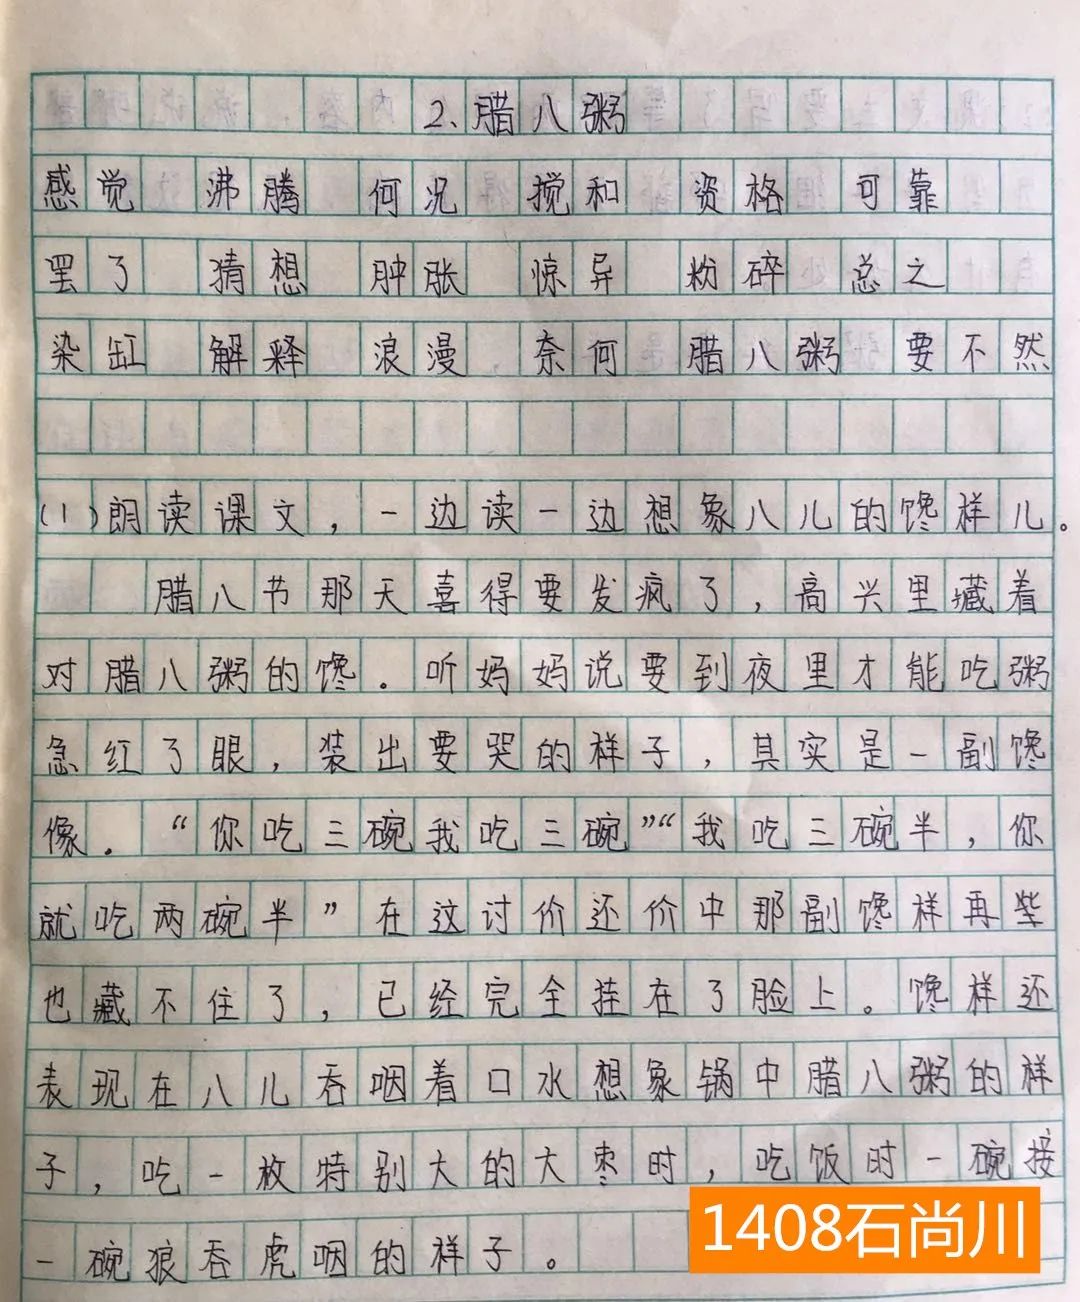 2、腊八粥
感觉 沸腾 何况 搅和 资格 可靠
罢了 猜想 肿胀 惊异 粉碎 总之
染缸 解释 浪漫 奈何 腊八粥 要不然
(1)朗读课文，一边读一边想象八儿的馋样儿。
腊八节那天喜得要发疯了，高兴里藏着
对腊八粥的馋。听妈妈说要到夜里才能吃粥
急红了眼，装出要哭的样子，其实是一副馋
像。“你吃三碗我吃三碗”“我吃三碗半，你
就吃两碗半”在这讨价还价中那副馋样再些
也藏不住了，已经完全挂在了脸上。馋样还
表现在八儿吞咽着口水想象锅中腊八粥的样
子，吃一枚特别大的大枣时，吃饭时一碗接
一碗狼吞虎咽的样子。
1408石尚川